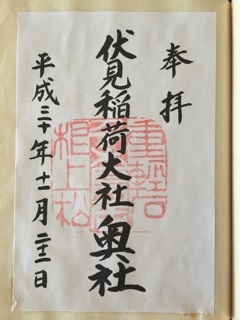 奉拝
伏見稲荷大社奥社
平成三十年十一月二十二日